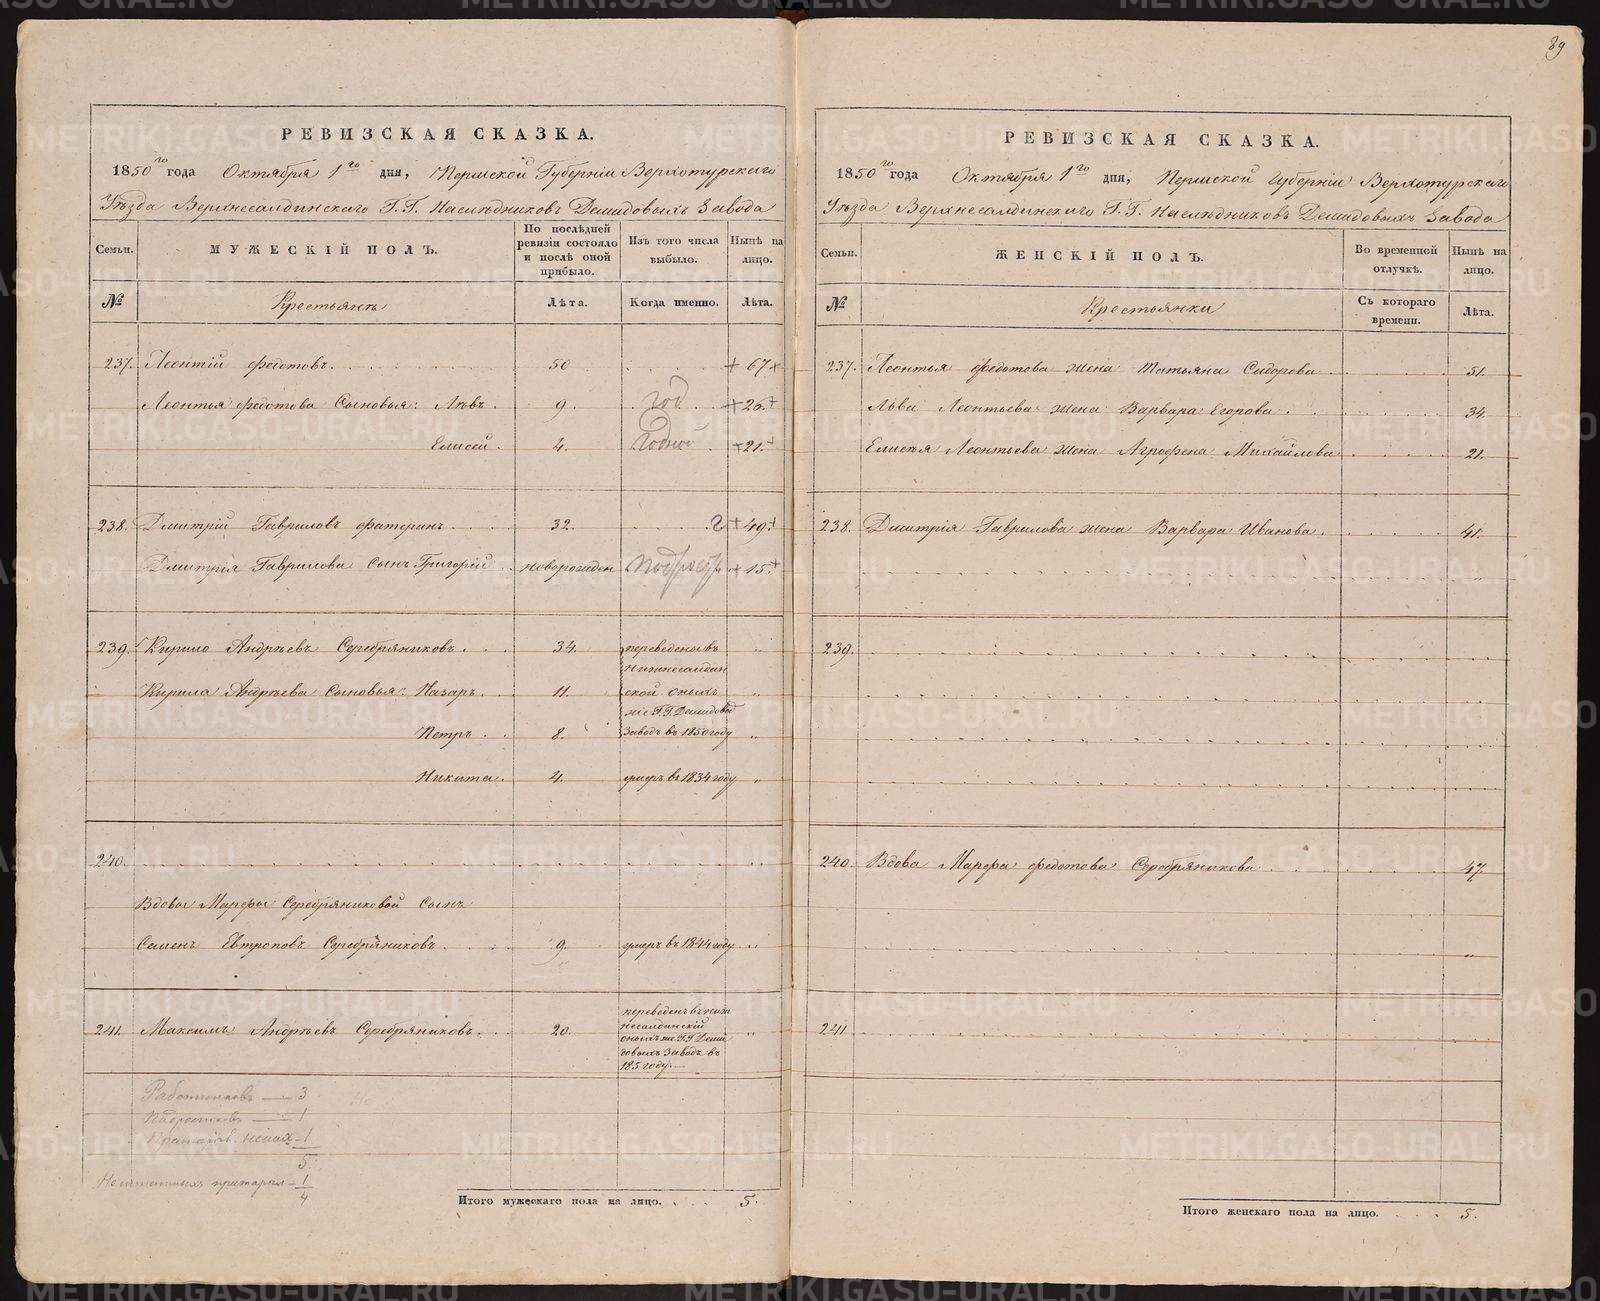 89
РЕВИЗСКАЯ СКАЗКА.
1850го года Октября 1го дня, Пермской Губерніи Верхотурскаго
Уѣзда Верхнесалдинскаго Г.Г. Наслѣдниковъ Демидовыхъ Завода
Семьи. МУЖЕСКІЙ ПОЛЪ. По послѣдней ревизіи состояло и послѣ оной прибыло. Изъ того числа выбыло. Нынѣ на лицо.
№ Крестьянъ Лѣта. Когда именно. Лѣта.
237. Леонтій Федотовъ. 50 + 67 +
Леонтья Федотова Сыновья: Левъ. 9. год + 26. +
Елисей. 4. Годной + 21. +
238. Дмитрій Гавриловъ Фатеринъ 32. 2 + 49. +
Дмитрія Гаврилова Сынъ Григорій новорожден + 15. +
239. Кирило Андрѣевъ Серебряниковъ. 34. переведены въ
Нижнесалдин
Кирила Андрѣева Сыновья: Назаръ. 11. ской оныхъ „
же Г.Г. Демидовыхъ
Петръ 8. Заводъ въ 1850 году „
Никита. 4. умеръ въ 1834 году „
240.
Вдовы Марфы Серебряниковой Сынъ
Семенъ Евтроповъ Серебряниковъ. 9. умеръ въ 1844 году „
241. Максимъ Андрѣевъ Серебряниковъ. 20. переведенъ въ Ниж
несалдинскій
оныхъ же Г.Г. Деми
довыхъ Заводъ въ
185 году.
Работниковъ — 3
Подростковъ — 1
1
5.
1
4
Итого мужескаго пола на лицо. 5.
РЕВИЗСКАЯ СКАЗКА.
1850го года Октября 1го дня, Пермской Губерніи Верхотурскаго
Уѣзда Верхнесалдинскаго Г.Г. Наслѣдниковъ Демидовыхъ Завода
Семьи. ЖЕНСКІЙ ПОЛЪ. Во временной отлучкѣ. Нынѣ на лицо.
№ Крестьянки Съ котораго времени. Лѣта.
237. Леонтья Федотова жена Татьяна Сидорова. 51.
Льва Леонтьева жена Варвара Егорова. 34.
Елисея Леонтьева жена Агрофена Михайлова 21.
238. Дмитрія Гаврилова жена Варвара Иванова. 41.
239.
240. Вдова Марфа Федотова Серебряникова 47.
241
Итого женскаго пола на лицо. 5.
METRIKI.GASO-URAL.RU